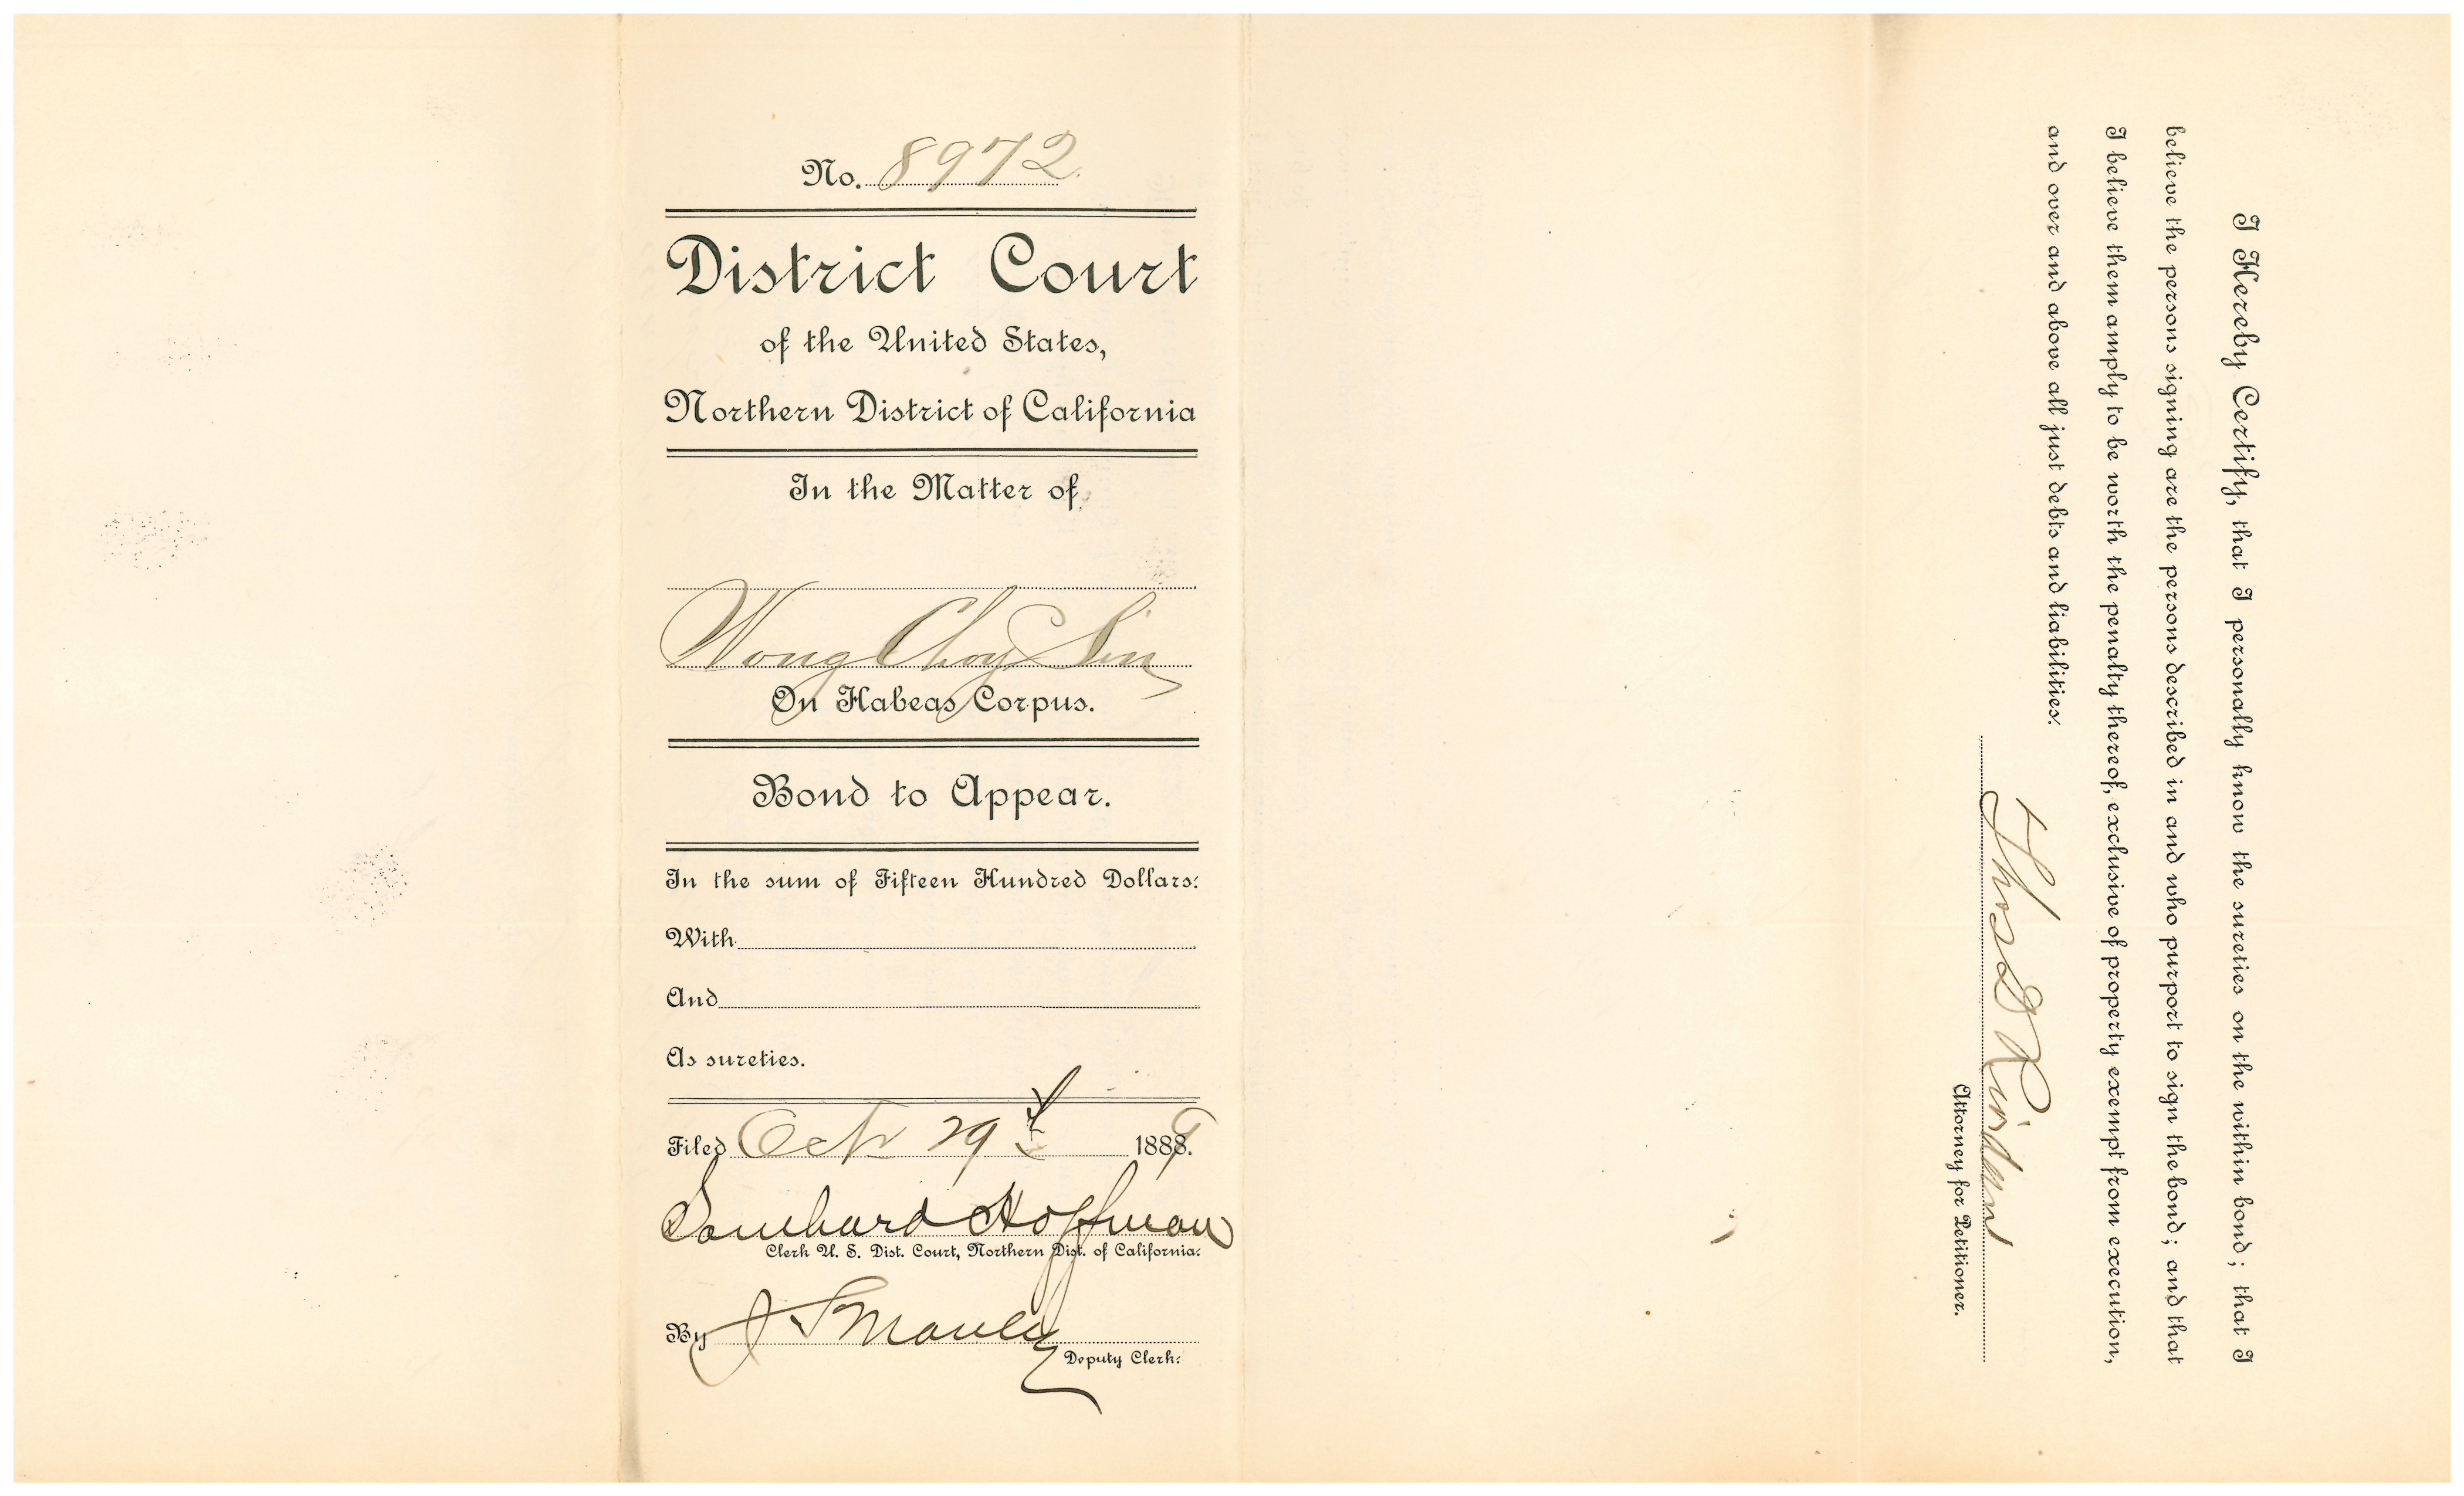 No. 8972.
District Court
of the United States,
Northern District of California
In the Matter of
Wong Choy Sin
On Habeas Corpus.
Bond to Appear.
In the sum of Fifteen Hundred Dollars.
With
And
As sureties.
Filed Oct 29th 1889.
Southard Hoffman
Clerk U. S. Dist. Court, Northern Dist. of California.
By J S Manley
Deputy Clerk.
I Hereby Certify, that I personally know the sureties on the within bond; that I
believe the persons signing are the persons described in and who purport to sign the bond; and that
I believe them amply to be worth the penalty thereof, exclusive of property exempt from execution,
and over and above all just debts and liabilities.
Thos D Riordan
Attorney for Petitioner.